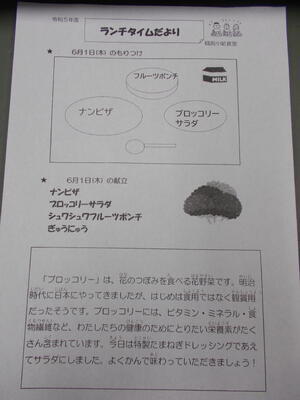 令和5年度
ランチタイムだより
★ 6月1日(木)のもりつけ
フルーツポンチ
MILK
ナンピザ
ブロッコリー
サラダ
★ 6月1日(木)の献立
ナンピザ
ブロッコリーサラダ
シュワシュワフルーツポンチ
ぎゅうにゅう
「ブロッコリー」は、花のつぼみを食べる花野菜です。明治
時代に日本にやってきましたが、はじめは食用ではなく観賞用
だったそうです。ブロッコリーには、ビタミン・ミネラル・食
物繊維など、わたしたちの健康のためにとりたい栄養素がたく
さん含まれています。今日は特製たまねぎドレッシングであえ
てサラダにしました。よくかんで味わっていただきましょう!